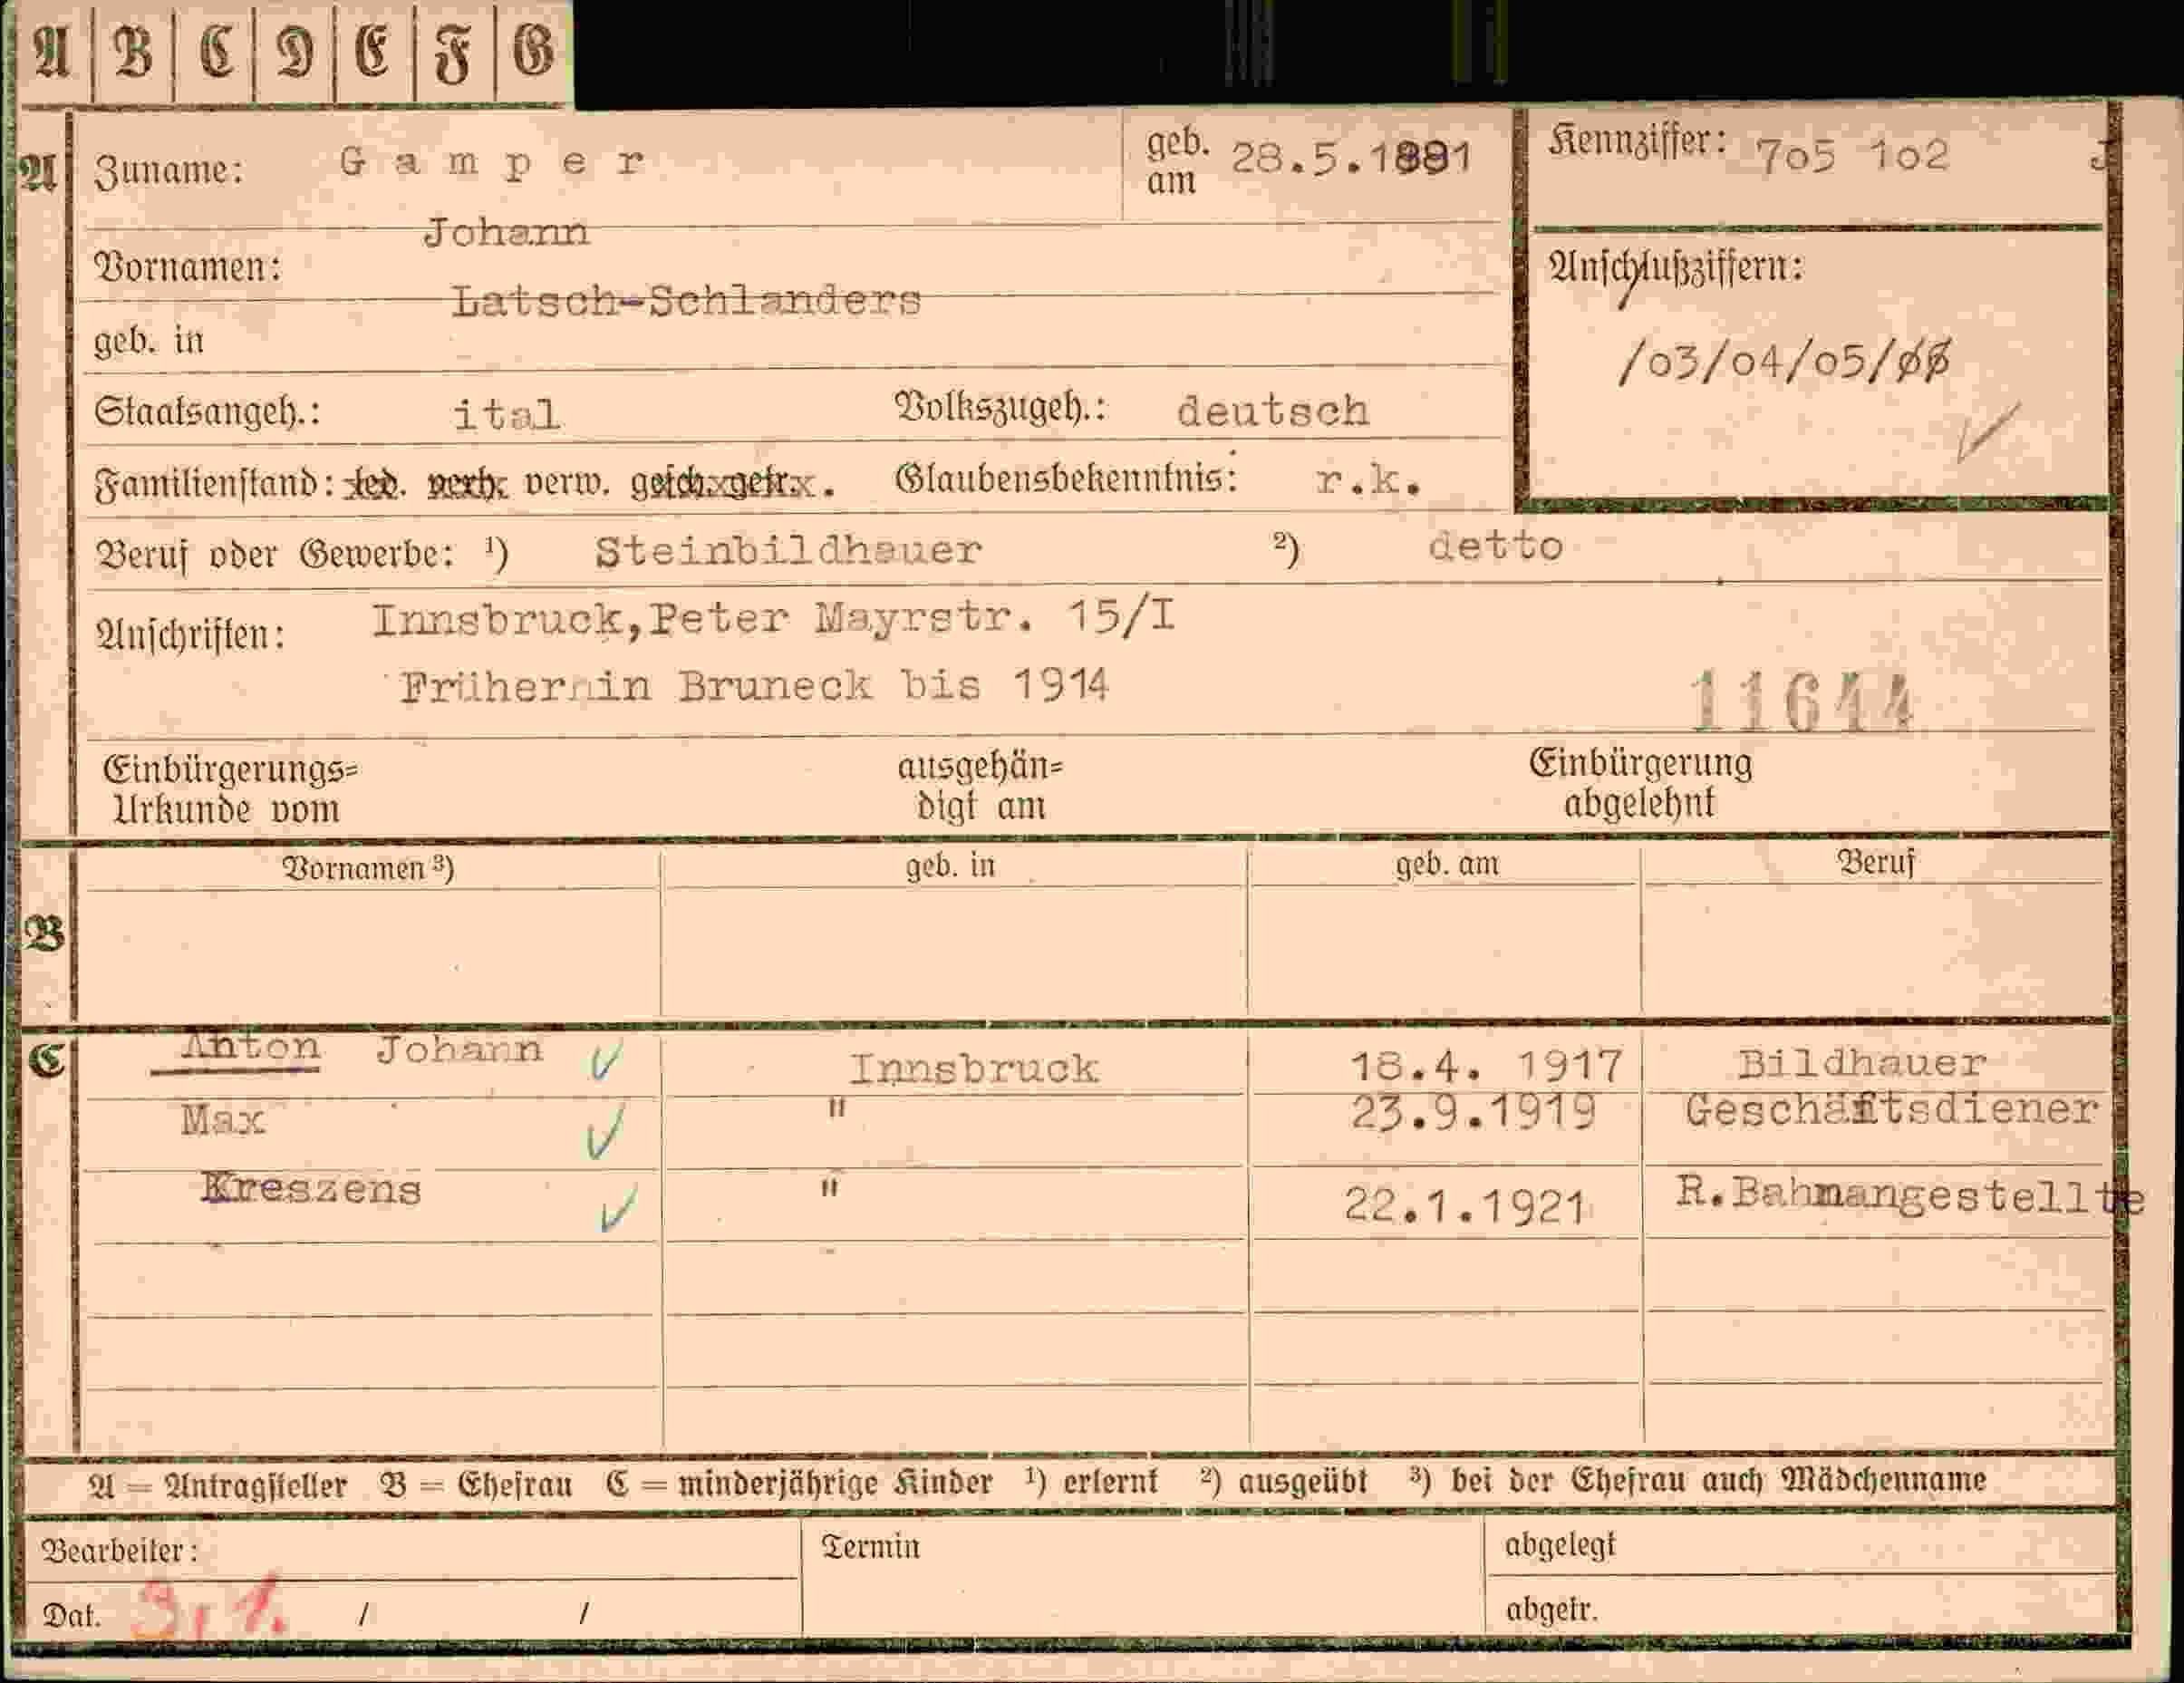 A B C D E F G
A Zuname: Gamper geb. am 28.5.1881 Kennziffer: 7o5 1o2 J
Vornamen: Johann
Anschlußziffern:
geb. in Latsch-Schlanders
/o3/o4/o5/
Staatsangeh.: ital Volkszugeh.: deutsch
Familienstand: led. verh. verw. gesch. getr. Glaubensbekenntnis: r.k.
Beruf oder Gewerbe: ¹) Steinbildhauer ²) detto
Anschriften: Innsbruck,Peter Mayrstr. 15/I
Früher in Bruneck bis 1914
11644
Einbürgerungs= ausgehän= Einbürgerung
Urkunde vom digt am abgelehnt
Vornamen ³) geb. in geb. am Beruf
B
C Anton Johann Innsbruck 18.4. 1917 Bildhauer
Max " 23.9.1919 Geschäftsdiener
Kreszens " 22.1.1921 R.Bahnangestellte
A = Antragsteller B = Ehefrau C = minderjährige Kinder ¹) erlernt ²) ausgeübt ³) bei der Ehefrau auch Mädchenname
Bearbeiter: Termin abgelegt
Dat. / / abgetr.